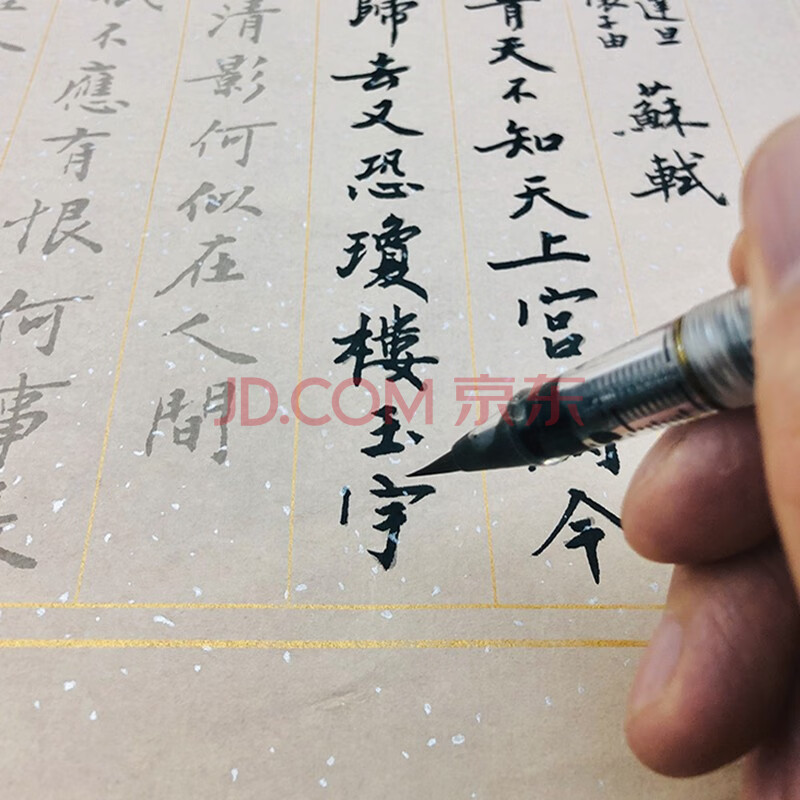 達旦
子由
蘇軾
青天不知天上宮今
歸去又恐瓊樓玉宇
清影何似在人間
不應有恨何事長
JD.COM 京东